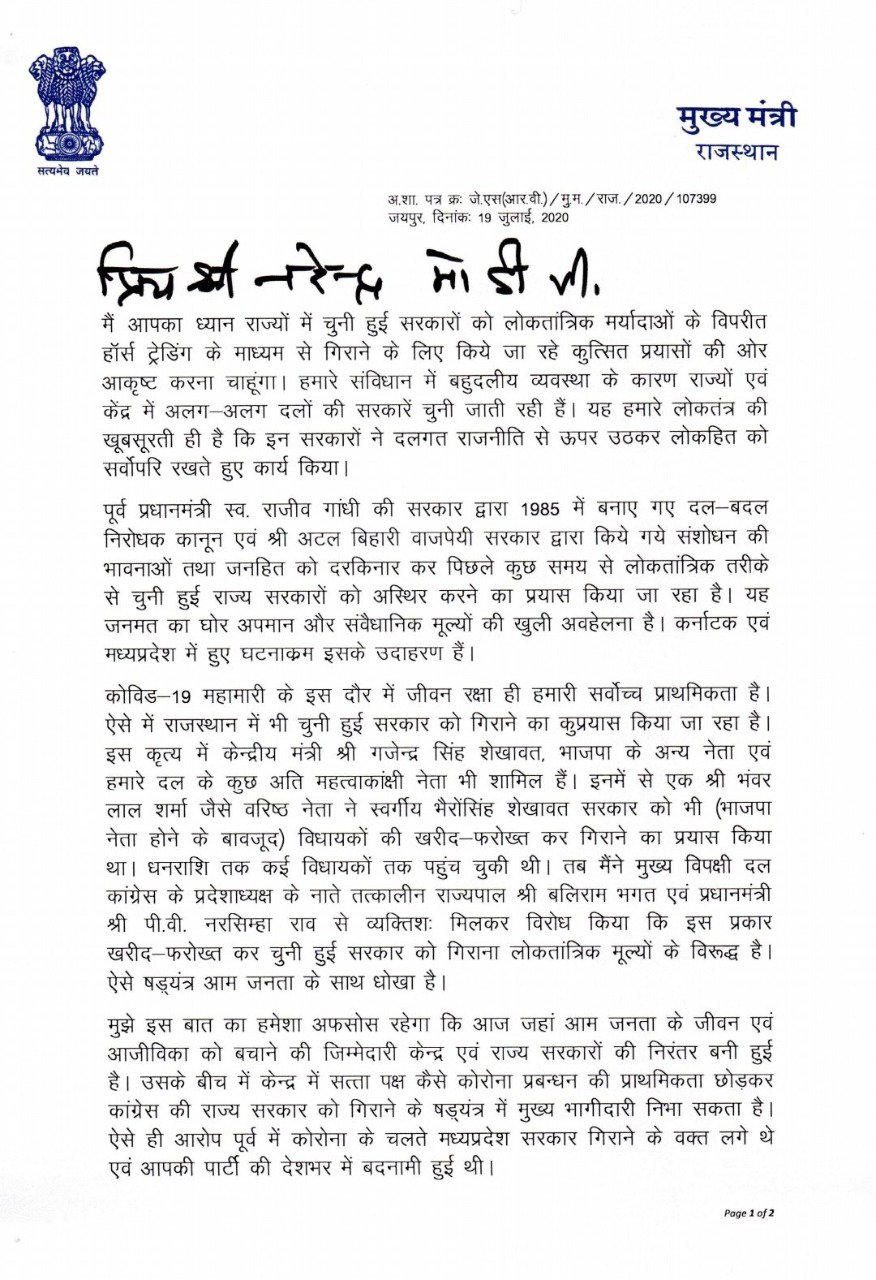 सत्यमेव जयते
मुख्य मंत्री
राजस्थान
अ.शा. पत्र क्रः जे.एस(आर.वी.)/मु.म./राज./2020/107399
जयपुर, दिनांकः 19 जुलाई, 2020
प्रिय श्री नरेन्द्र मोदी जी.
मैं आपका ध्यान राज्यों में चुनी हुई सरकारों को लोकतांत्रिक मर्यादाओं के विपरीत
हॉर्स ट्रेडिंग के माध्यम से गिराने के लिए किये जा रहे कुत्सित प्रयासों की ओर
आकृष्ट करना चाहूंगा। हमारे संविधान में बहुदलीय व्यवस्था के कारण राज्यों एवं
केंद्र में अलग–अलग दलों की सरकारें चुनी जाती रही हैं। यह हमारे लोकतंत्र की
खूबसूरती ही है कि इन सरकारों ने दलगत राजनीति से ऊपर उठकर लोकहित को
सर्वोपरि रखते हुए कार्य किया।
पूर्व प्रधानमंत्री स्व. राजीव गांधी की सरकार द्वारा 1985 में बनाए गए दल–बदल
निरोधक कानून एवं श्री अटल बिहारी वाजपेयी सरकार द्वारा किये गये संशोधन की
भावनाओं तथा जनहित को दरकिनार कर पिछले कुछ समय से लोकतांत्रिक तरीके
से चुनी हुई राज्य सरकारों को अस्थिर करने का प्रयास किया जा रहा है। यह
जनमत का घोर अपमान और संवैधानिक मूल्यों की खुली अवहेलना है। कर्नाटक एवं
मध्यप्रदेश में हुए घटनाक्रम इसके उदाहरण हैं।
कोविड–19 महामारी के इस दौर में जीवन रक्षा ही हमारी सर्वोच्च प्राथमिकता है।
ऐसे में राजस्थान में भी चुनी हुई सरकार को गिराने का कुप्रयास किया जा रहा है।
इस कृत्य में केन्द्रीय मंत्री श्री गजेन्द्र सिंह शेखावत, भाजपा के अन्य नेता एवं
हमारे दल के कुछ अति महत्वाकांक्षी नेता भी शामिल हैं। इनमें से एक श्री भंवर
लाल शर्मा जैसे वरिष्ठ नेता ने स्वर्गीय भैरोंसिंह शेखावत सरकार को भी (भाजपा
नेता होने के बावजूद) विधायकों की खरीद–फरोख्त कर गिराने का प्रयास किया
था। धनराशि तक कई विधायकों तक पहुंच चुकी थी। तब मैंने मुख्य विपक्षी दल
कांग्रेस के प्रदेशाध्यक्ष के नाते तत्कालीन राज्यपाल श्री बलिराम भगत एवं प्रधानमंत्री
श्री पी.वी. नरसिम्हा राव से व्यक्तिशः मिलकर विरोध किया कि इस प्रकार
खरीद–फरोख्त कर चुनी हुई सरकार को गिराना लोकतांत्रिक मूल्यों के विरूद्ध है।
ऐसे षड़्यंत्र आम जनता के साथ धोखा है।
मुझे इस बात का हमेशा अफसोस रहेगा कि आज जहां आम जनता के जीवन एवं
आजीविका को बचाने की जिम्मेदारी केन्द्र एवं राज्य सरकारों की निरंतर बनी हुई
है। उसके बीच में केन्द्र में सत्ता पक्ष कैसे कोरोना प्रबन्धन की प्राथमिकता छोड़कर
कांग्रेस की राज्य सरकार को गिराने के षड़्यंत्र में मुख्य भागीदारी निभा सकता है।
ऐसे ही आरोप पूर्व में कोरोना के चलते मध्यप्रदेश सरकार गिराने के वक्त लगे थे
एवं आपकी पार्टी की देशभर में बदनामी हुई थी।
Page 1 of 2